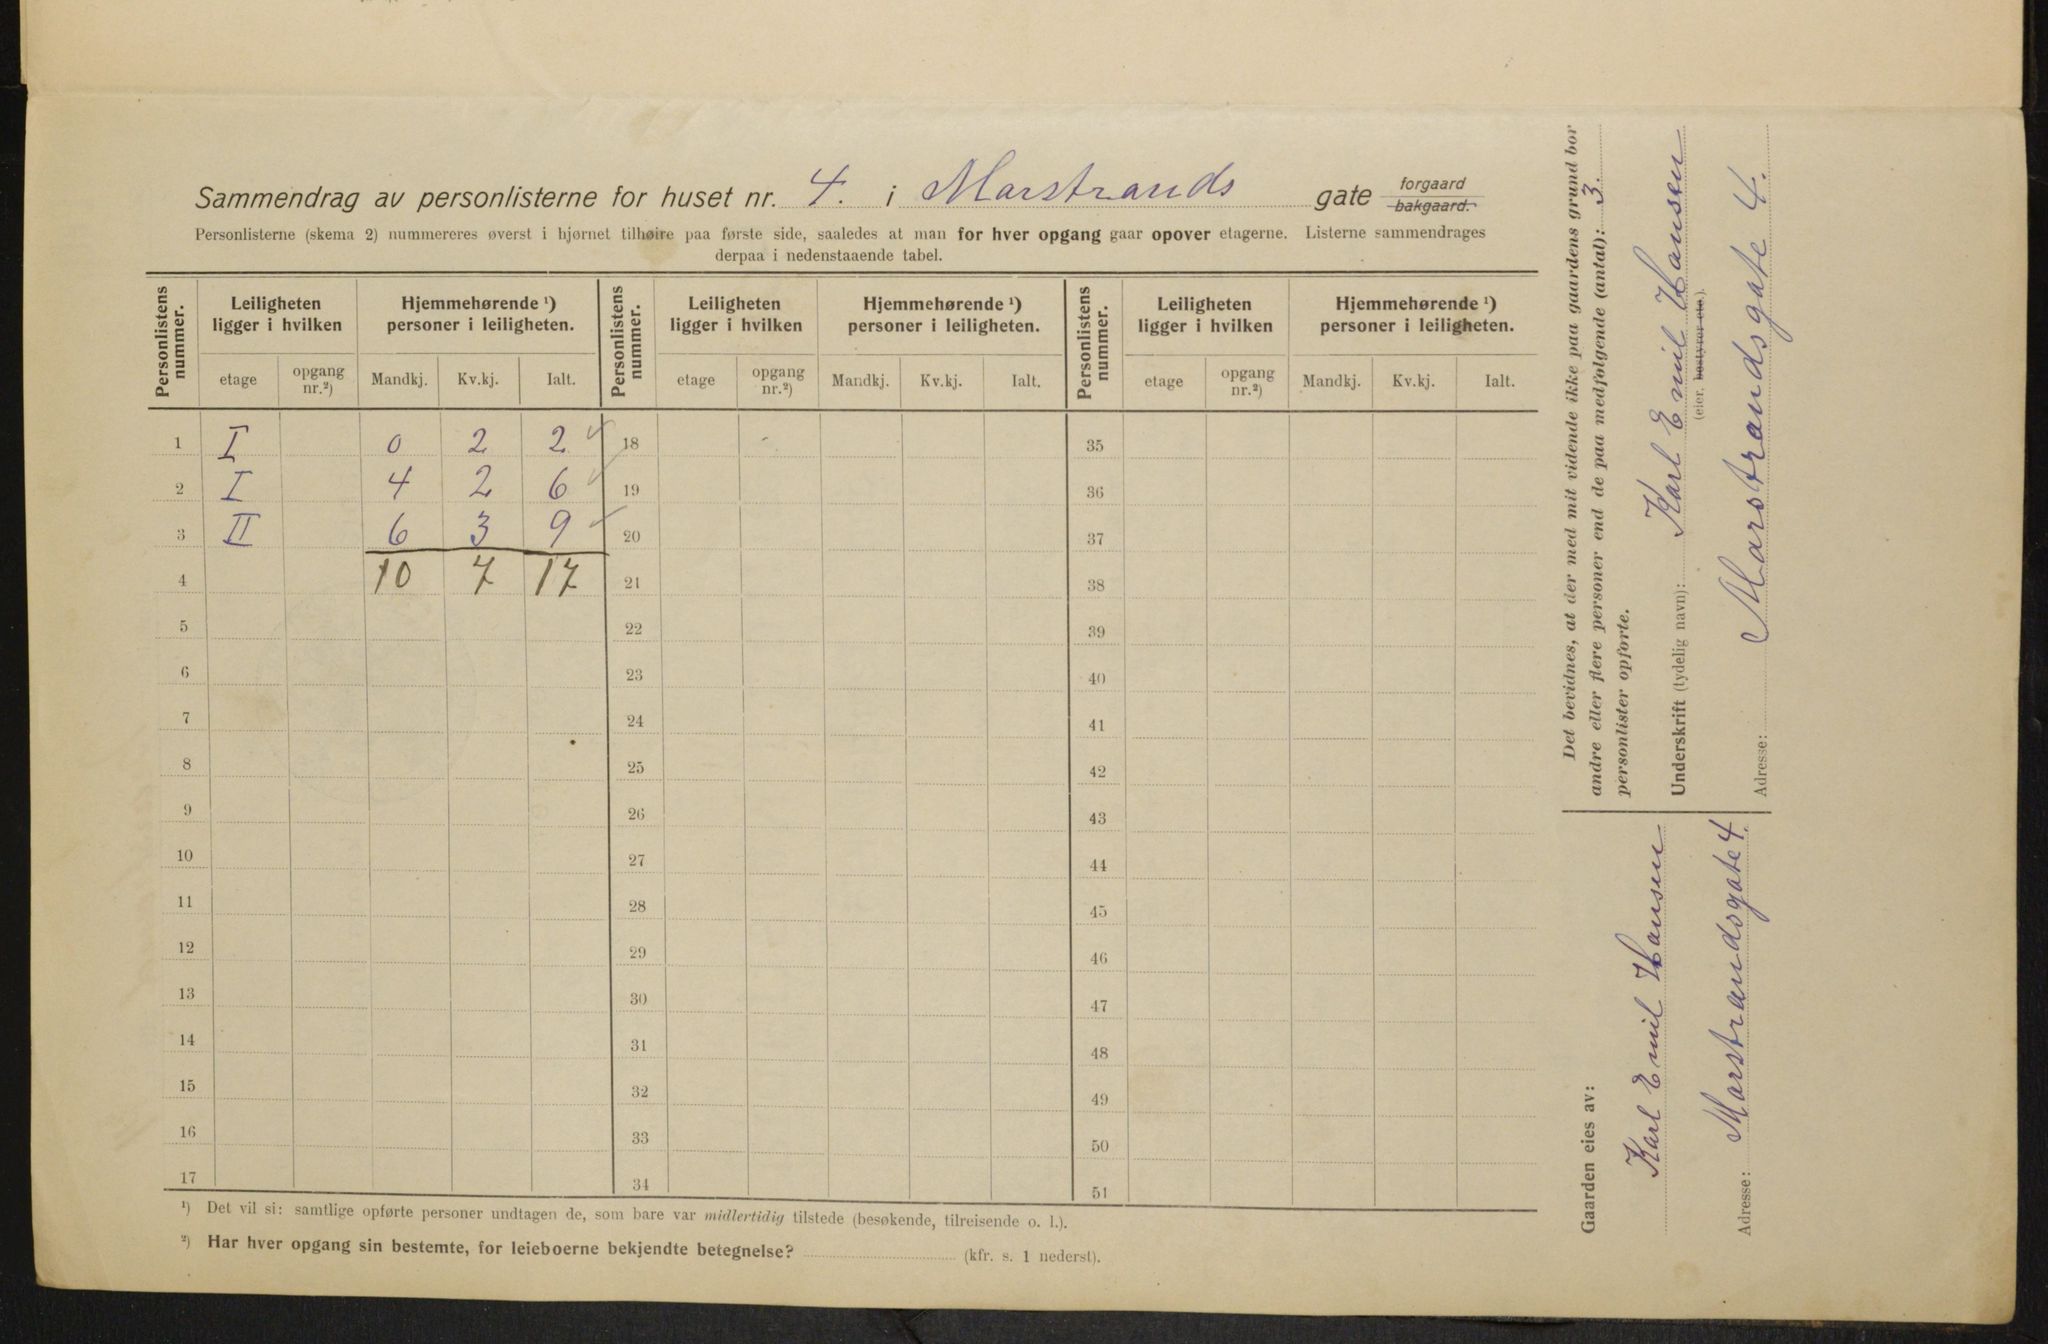 Sammendrag av personlisterne for huset nr. 4. i Marstrands gate forgaard bakgaard.
Personlisterne (skema 2) nummereres øverst i hjørnet tilhøire paa første side, saaledes at man for hver opgang gaar opover etagerne. Listerne sammendrages
derpaa i nedenstaaende tabel.
Personlistens nummer. Leiligheten ligger i hvilken Hjemmehørende ¹) personer i leiligheten. Personlistens nummer. Leiligheten ligger i hvilken Hjemmehørende ¹) personer i leiligheten. Personlistens nummer. Leiligheten ligger i hvilken Hjemmehørende ¹) personer i leiligheten.
etage opgang nr.²) Mandkj. Kv.kj. Ialt. etage opgang nr.²) Mandkj. Kv.kj. Ialt. etage opgang nr.²) Mandkj. Kv.kj. Ialt.
1 I 0 2 2 ✓ 18 35
2 I 4 2 6 ✓ 19 36
3 II 6 3 9 ✓ 20 37
4 10 7 17 21 38
5 22 39
6 23 40
7 24 41
8 25 42
9 26 43
10 27 44
11 28 45
12 29 46
13 30 47
14 31 48
15 32 49
16 33 50
17 34 51
¹) Det vil si: samtlige opførte personer undtagen de, som bare var midlertidig tilstede (besøkende, tilreisende o. l.).
²) Har hver opgang sin bestemte, for leieboerne bekjendte betegnelse? (kfr. s. 1 nederst).
Det bevidnes, at der med mit vidende ikke paa gaardens grund bor
andre eller flere personer end de paa medfølgende (antal): 3.
personlister opførte.
Underskrift (tydelig navn): Karl Emil Hansen
(eier, bestyrer etc.).
Adresse: Marstrandsgate 4.
Gaarden eies av:
Karl Emil Hansen
Adresse: Marstrandsgate 4.